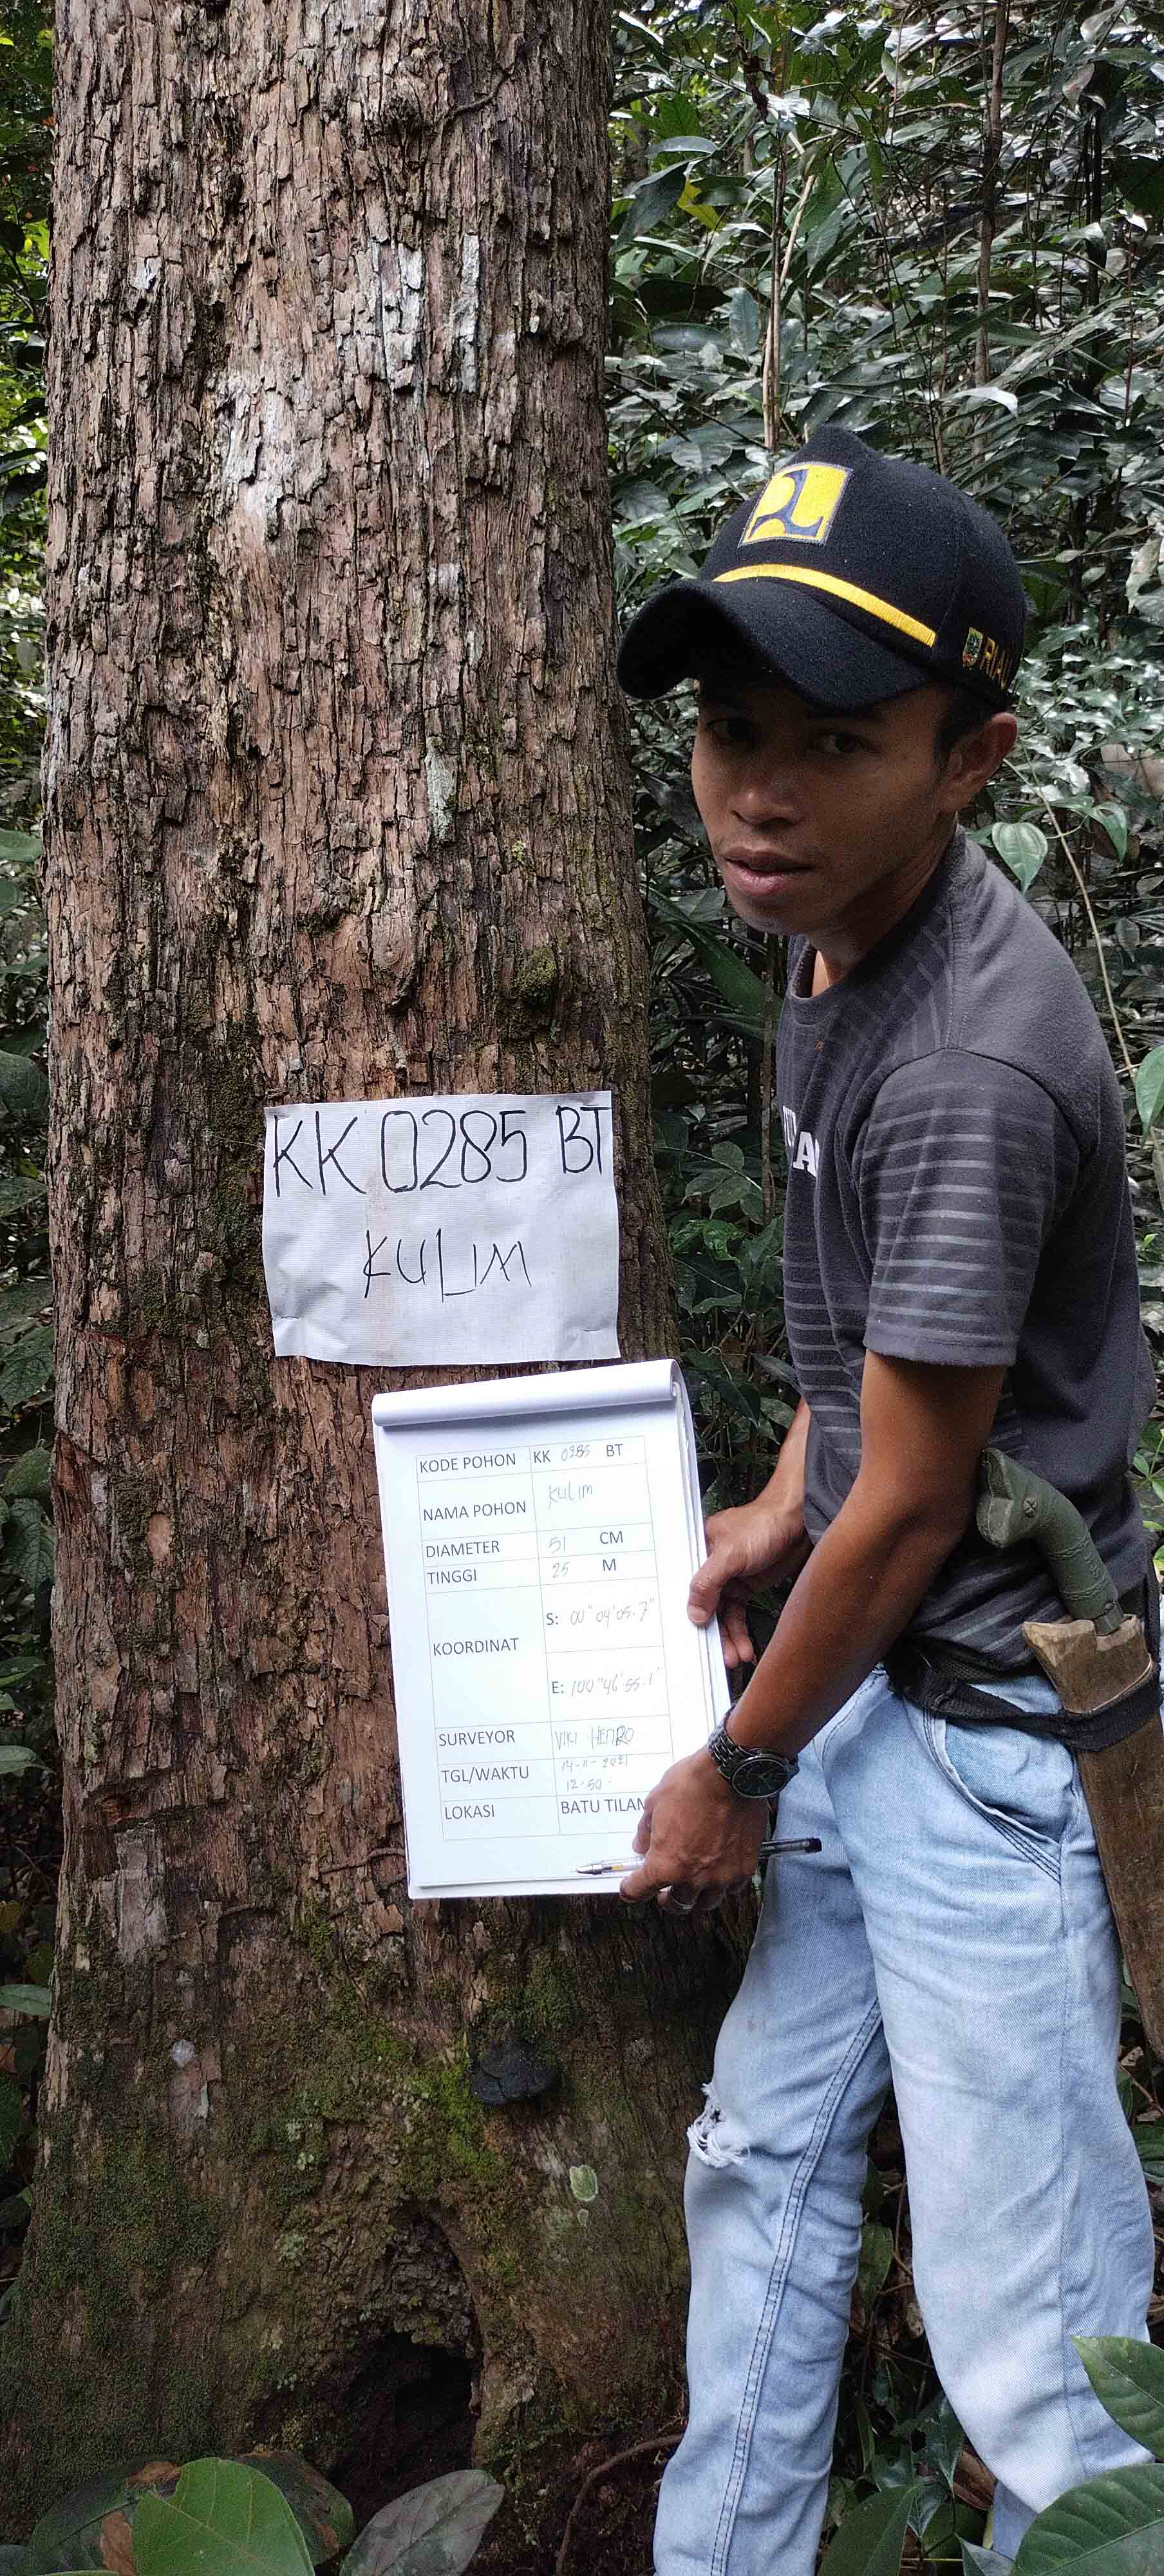 RIAU
KK 0285 BT
KULIM
KODE POHON KK 0285 BT
NAMA POHON KULIM
DIAMETER 51 CM
TINGGI 25 M
KOORDINAT
S: 00"04'05.7"
E: 100"46'55.1'
SURVEYOR VIKI HENRO
TGL/WAKTU 14-11-2021
12.50.
LOKASI BATU TILAN